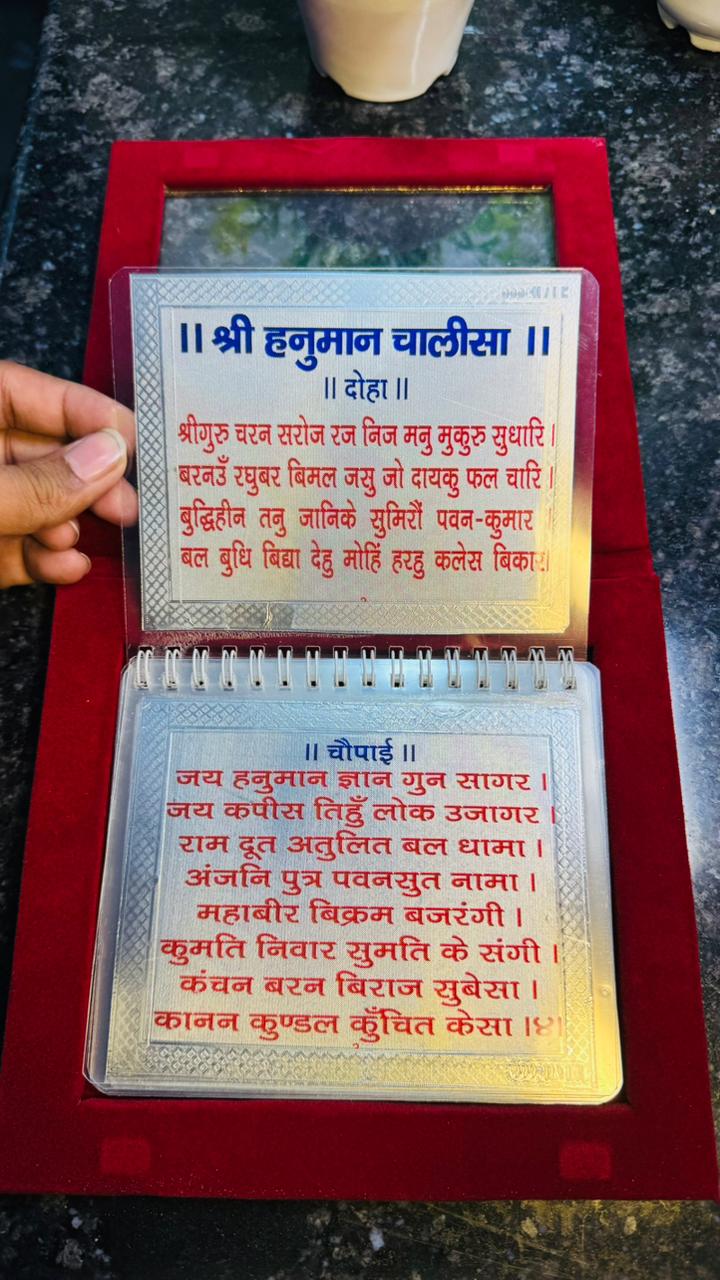 ॥ श्री हनुमान चालीसा ॥
॥ दोहा ॥
श्रीगुरु चरन सरोज रज निज मनु मुकुरु सुधारि ।
बरनउँ रघुबर बिमल जसु जो दायकु फल चारि ।
बुद्धिहीन तनु जानिके सुमिरौं पवन-कुमार ।
बल बुधि बिद्या देहु मोहिं हरहु कलेस बिकार।
॥ चौपाई ॥
जय हनुमान ज्ञान गुन सागर ।
जय कपीस तिहुँ लोक उजागर ।
राम दूत अतुलित बल धामा ।
अंजनि पुत्र पवनसुत नामा ।
महाबीर बिक्रम बजरंगी ।
कुमति निवार सुमति के संगी ।
कंचन बरन बिराज सुबेसा ।
कानन कुण्डल कुँचित केसा ।४।